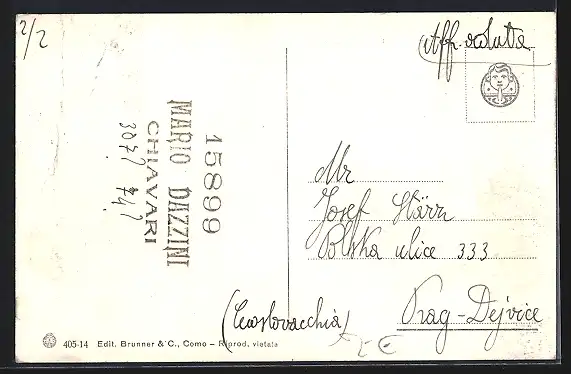 2/2
Aff. valuta
15899
MARIO DAZZINI
CHIAVARI
Mr
Josef Stärz
Polska ulice 333
Prag-Dejvice
(Cecoslovacchia)
405-14 Edit. Brunner & C., Como – Riprod. vietata